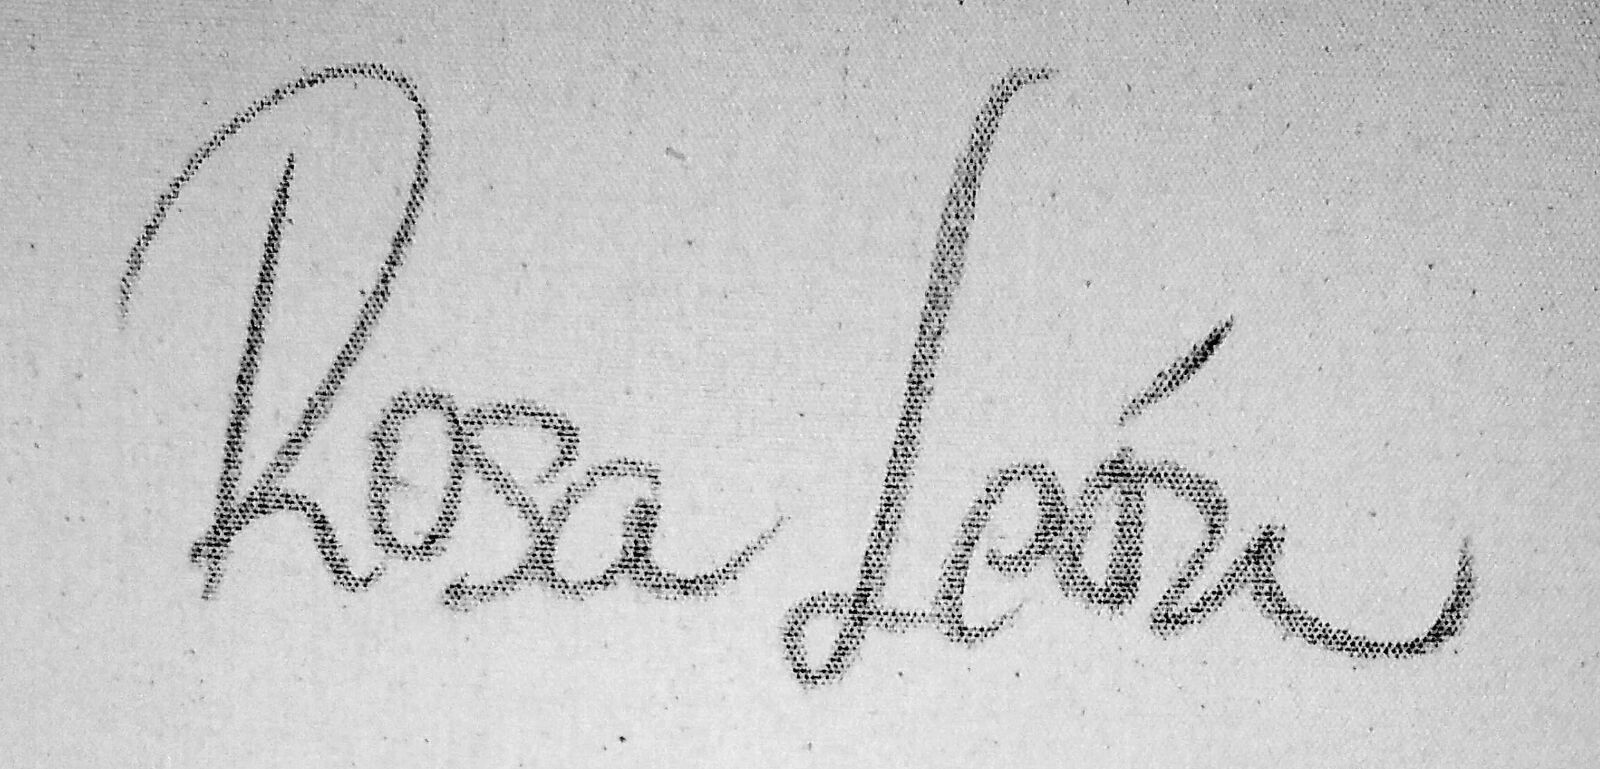 Rosa León